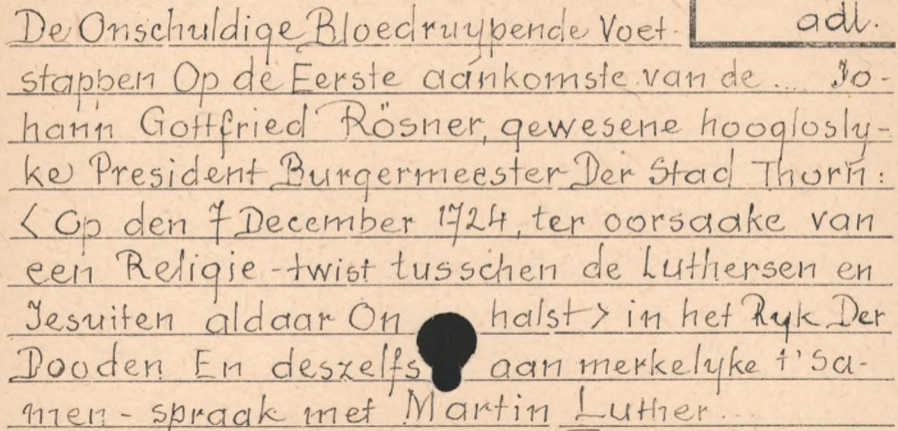 De Onschuldige Bloedruypende Voet- adl.
stappen Op de Eerste aankomste van de .... Jo-
hann Gottfried Rösner, gewesene hooglosly-
ke President Burgermeester Der Stad Thorn:
< Op den 7 December 1724, ter oorsaake van
een Religie-twist tusschen de Luthersen en
Jesuiten aldaar On halst> in het Ryk Der
Dooden En deszelfs aan merkelyke t'Sa-
men-spraak met Martin Luther...